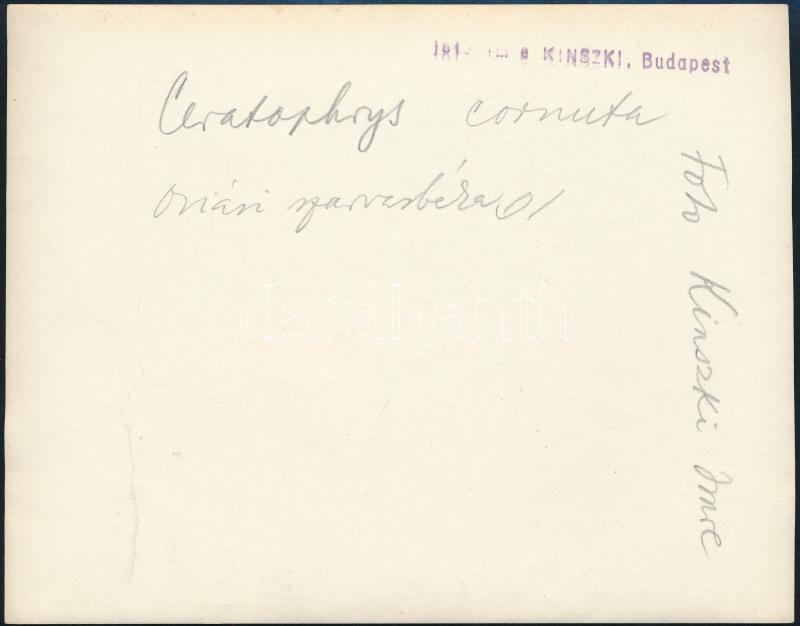 KINSZKI, Budapest
Ceratophrys cornuta
óriási szarvasbéka
Foto Kinszki Imre
darabanth